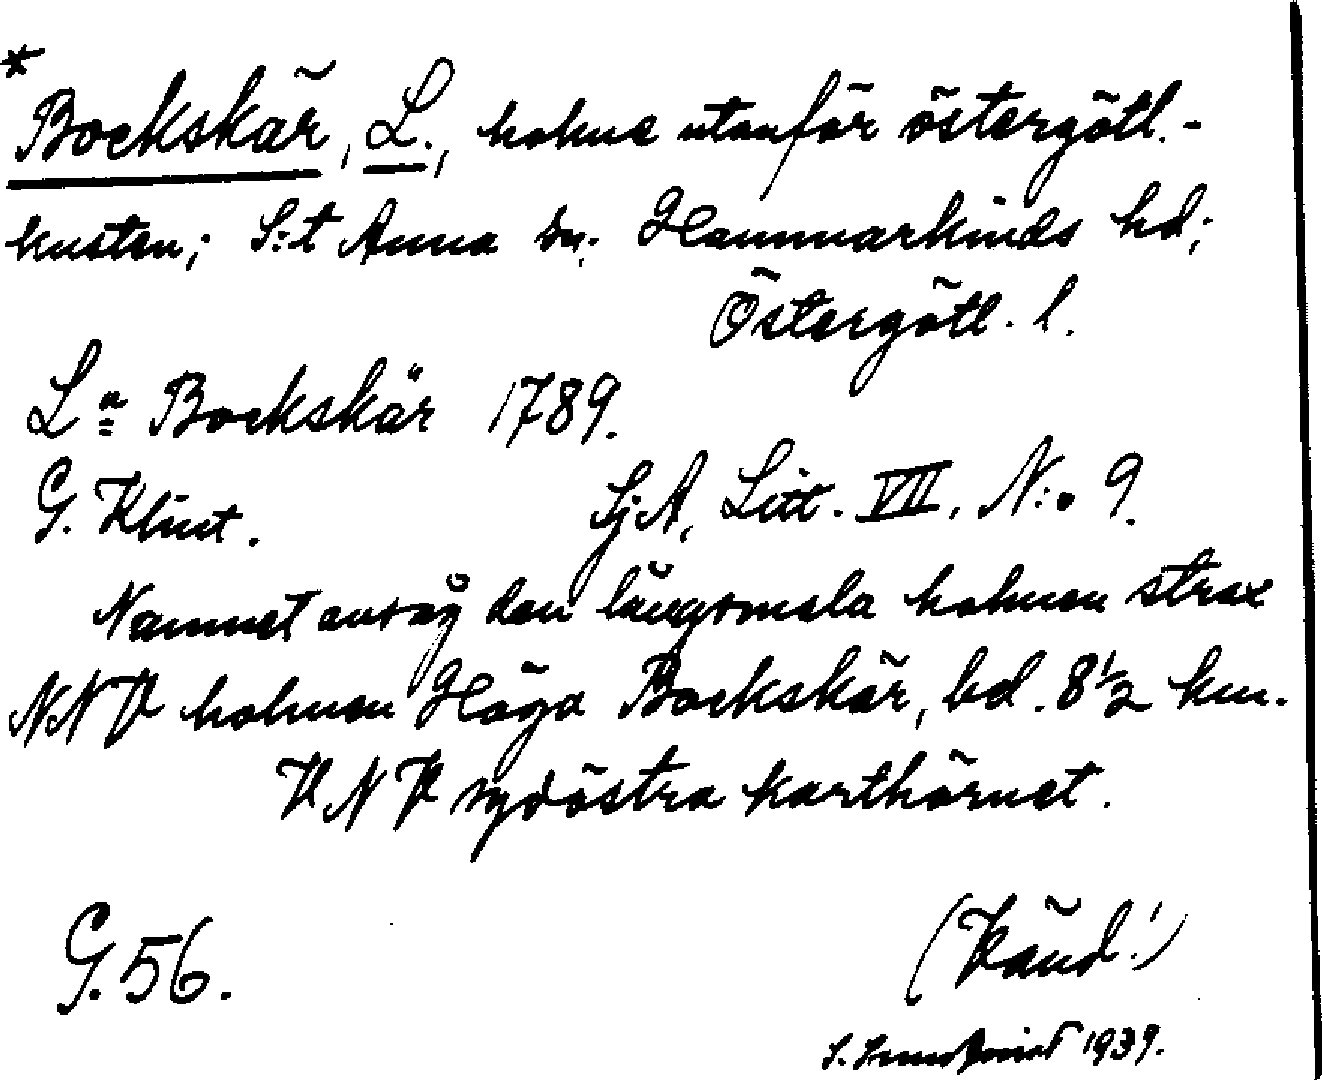 *
Bockskär, L., holme utanför östergötl.-
kusten; S:t Anna sn; Hammarkinds hd;
Östergötl. l.
La Bockskär 1789.
G. Klint. SjA, Litt. VII, N:o 9.
Namnet avser den långsmala holmen strax
NNV holmen Höga Bockskär, bd. 8½ km.
VNV sydöstra karthörnet.
G.56. (Vänd!)
1939.